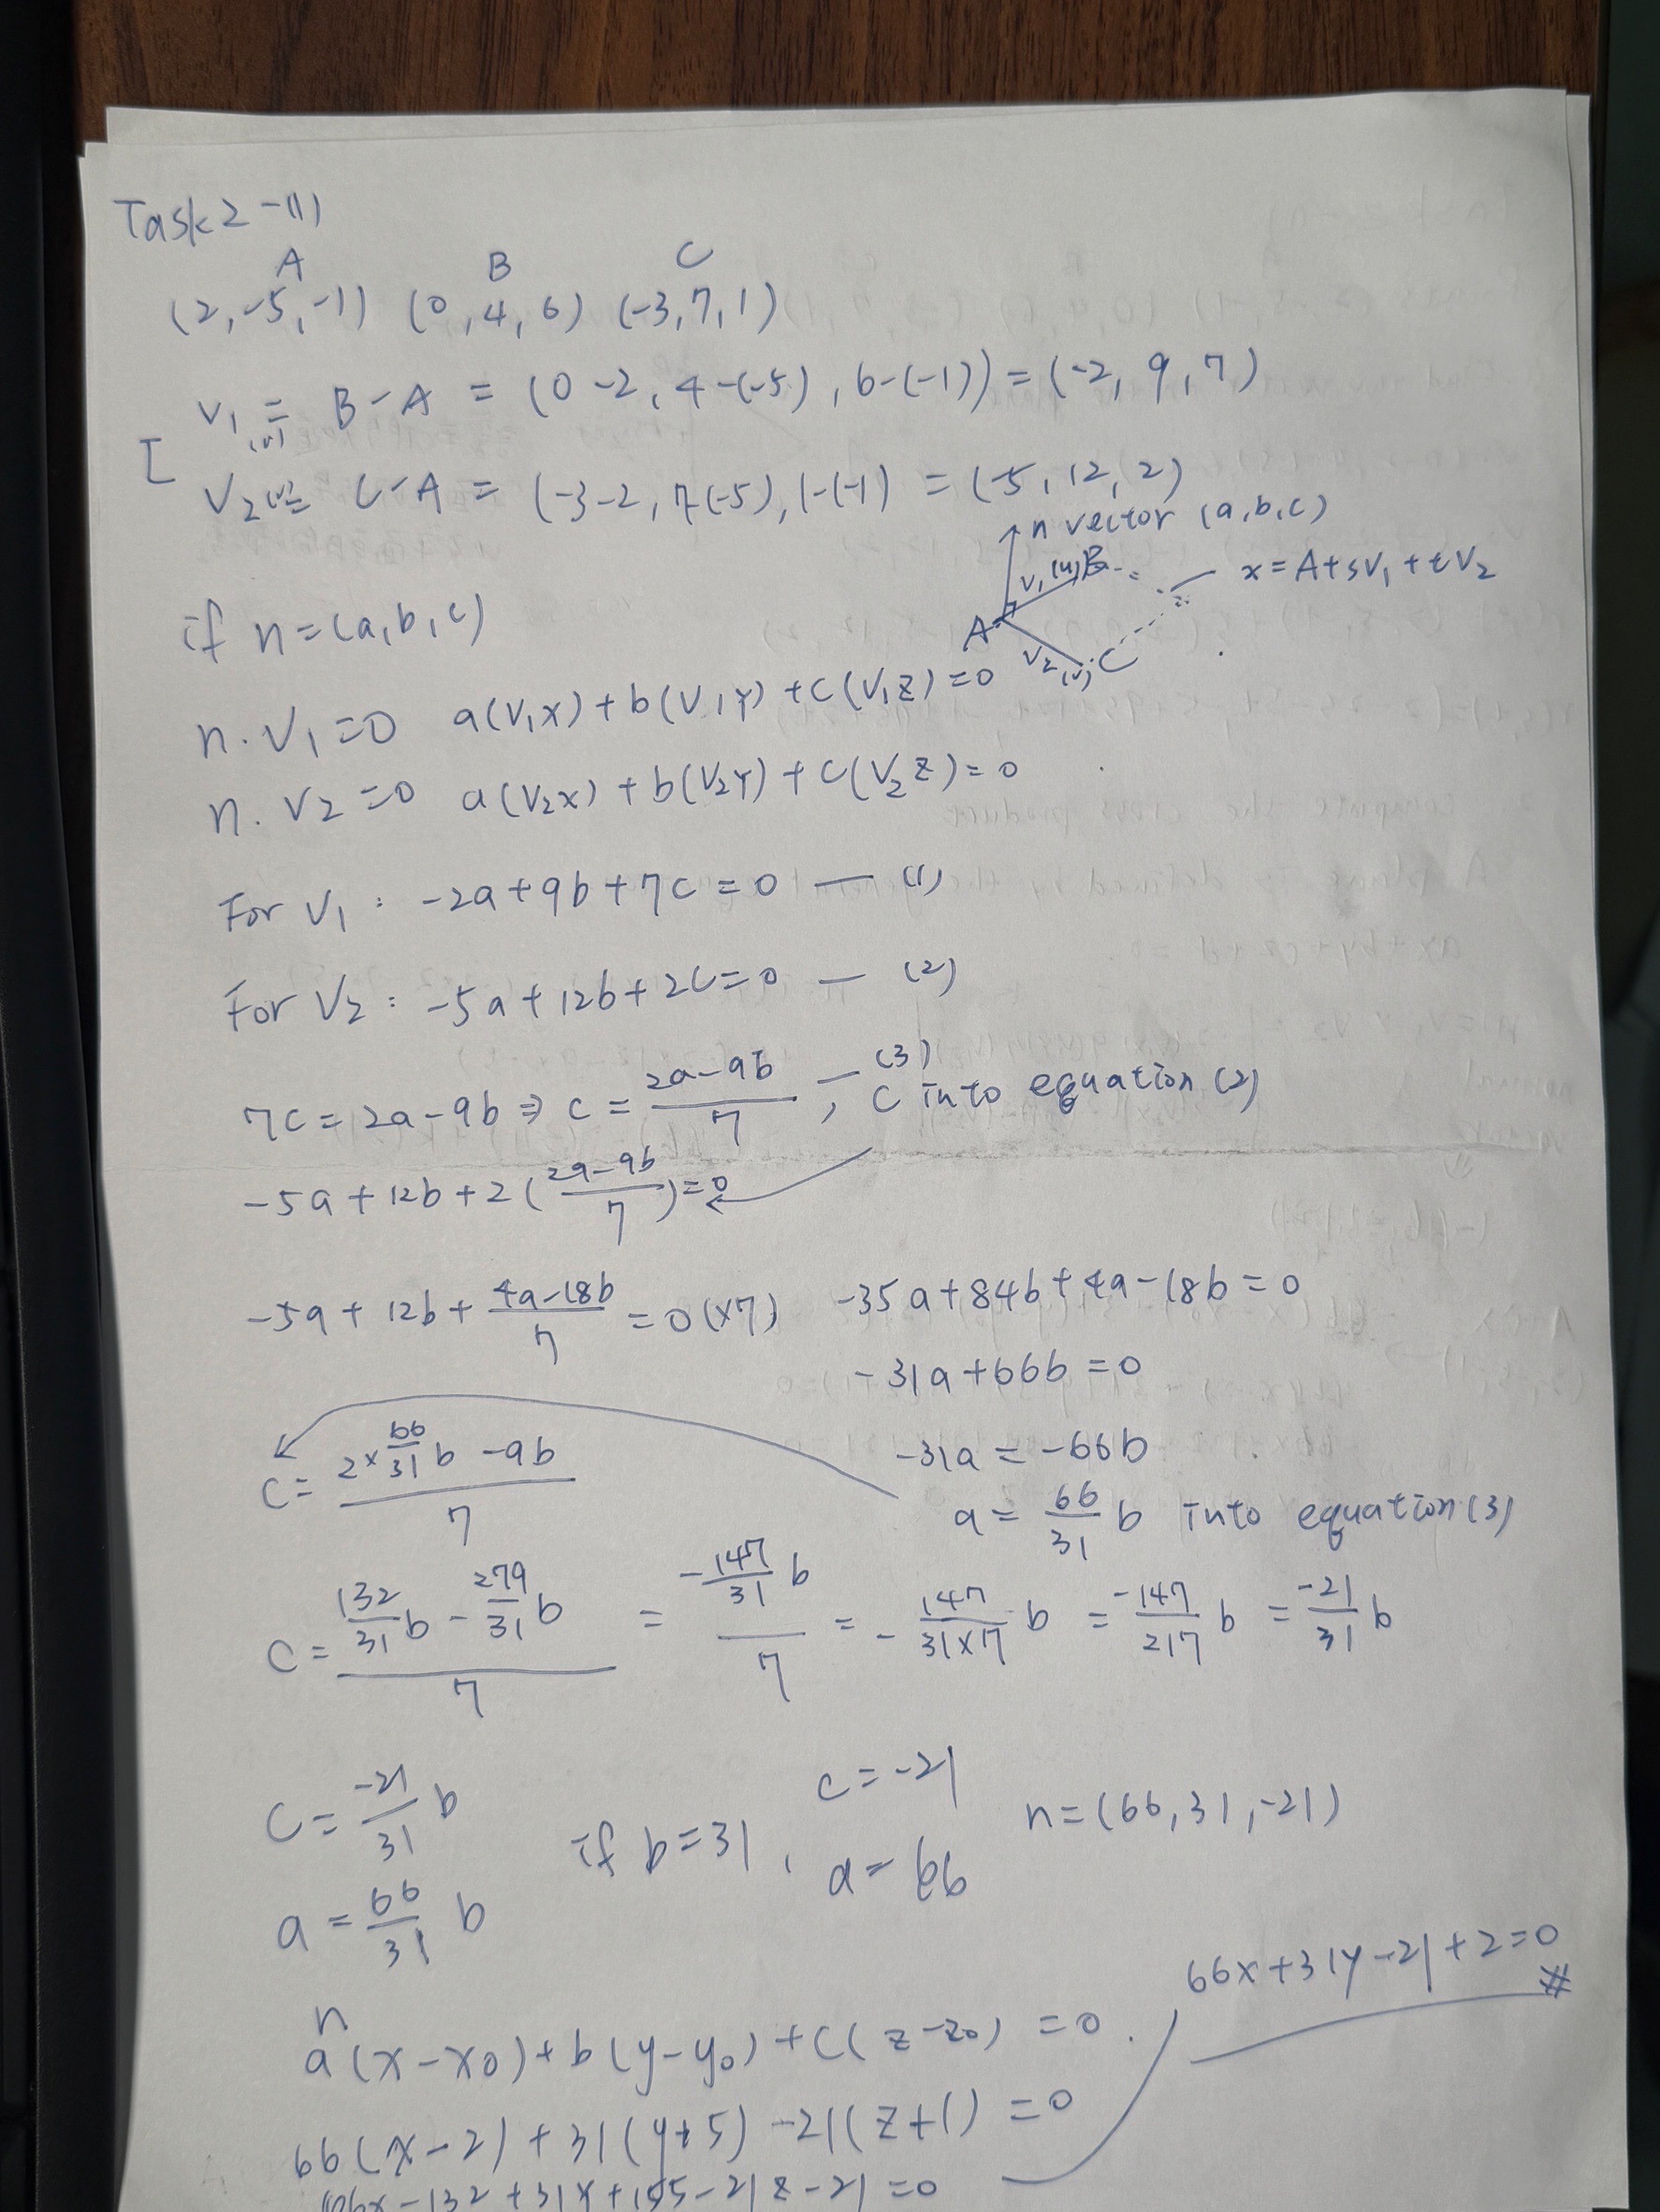 Task2-(1)
A B C
(2,-5,-1) (0,4,6) (-3,7,1)
V1(u) = B-A = (0-2, 4-(-5), 6-(-1)) = (-2, 9, 7)
V2(v) = C-A = (-3-2, 7(-5), 1-(-1) = (-5, 12, 2)
n vector (a,b,c)
V1(u) B
x=A+sV1+tV2
A
V2(v) C
if n=(a,b,c)
n·V1=0 a(V1x)+b(V1Y)+c(V1Z)=0
n·V2=0 a(V2x)+b(V2Y)+c(V2Z)=0
For V1 : -2a+9b+7c=0 — (1)
For V2 : -5a+12b+2c=0 — (2)
7c=2a-9b ⇒ c = (2a-9b)/7 , — (3) C into equation (2)
-5a+12b+2((2a-9b)/7)=0
-5a+12b+(4a-18b)/7 =0(×7) -35a+84b+4a-18b=0
-31a+66b=0
-31a = -66b
a = 66/31 b into equation(3)
c = (2×66/31 b -9b)/7
c = (132/31 b - 279/31 b)/7 = (-147/31 b)/7 = - 147/(31×7) b = -147/217 b = -21/31 b
c = -21/31 b
a = 66/31 b
if b=31, c=-21
a=66
n=(66,31,-21)
66x+31y-21+2=0 #
n
a(x-x0)+b(y-y0)+c(z-z0) =0.
66(x-2)+31(y+5)-21(z+1)=0
66x-132+31x+155-21z-21=0